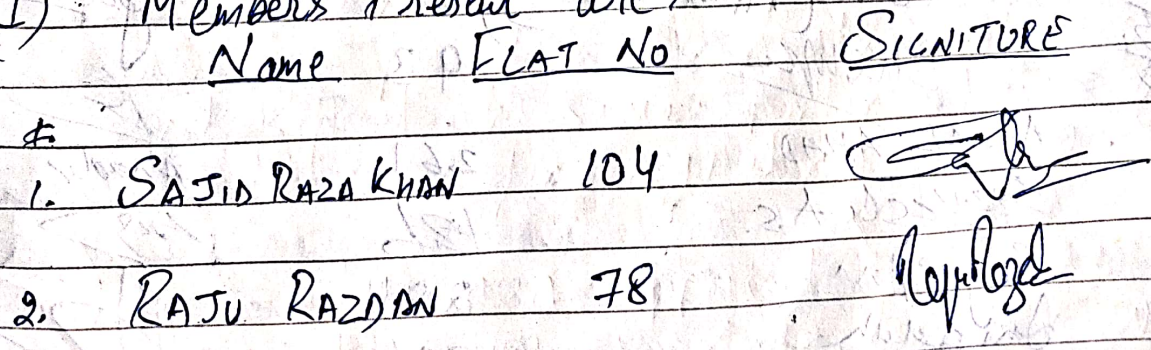 1) Members Present
Name FLAT NO SIGNITURE
1. SAJID RAZA KHAN 104
2. RAJU RAZDAN 78